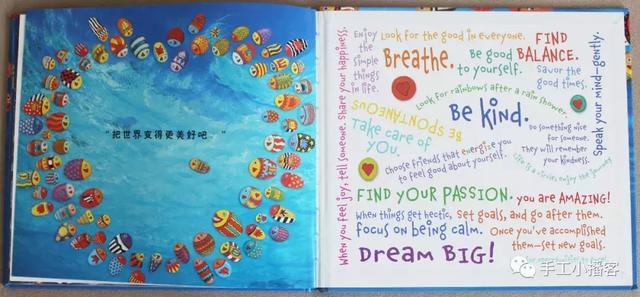 “把世界变得更美好吧。”
When you feel joy, tell someone. Share your happiness.
Enjoy
the
simple
things
in life.
Look for the good in everyone.
Breathe.
Be good
to yourself.
FIND
BALANCE.
Savor the
good times.
Speak your mind—gently.
Look for rainbows after a rain shower.
BE SPONTANEOUS
Be kind.
Take care of
YOU.
Do something nice
for someone.
They will remember
your kindness.
Choose friends that energize you
to feel good about yourself.
Life is a circle, enjoy the journey
FIND YOUR PASSION.
you are AMAZING!
When things get hectic, set goals, and go after them.
focus on being calm.
Once you've accomplished
them—set new goals.
Dream BIG!
手工小播客